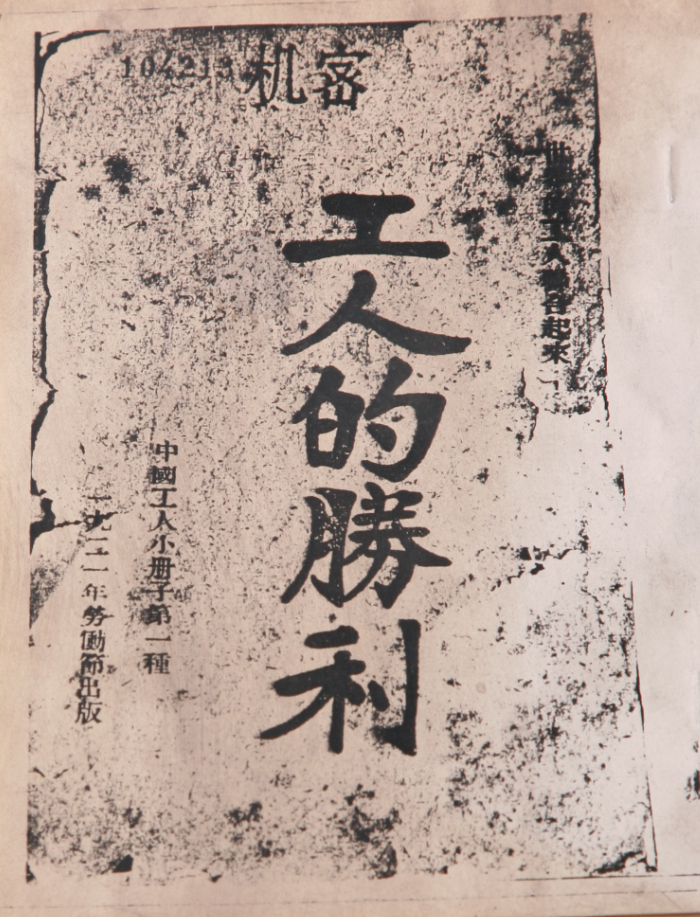 104213
机密
世界的工人聯合起來！
工人的勝利
中國工人小册子第一種
一九二一年勞働節出版